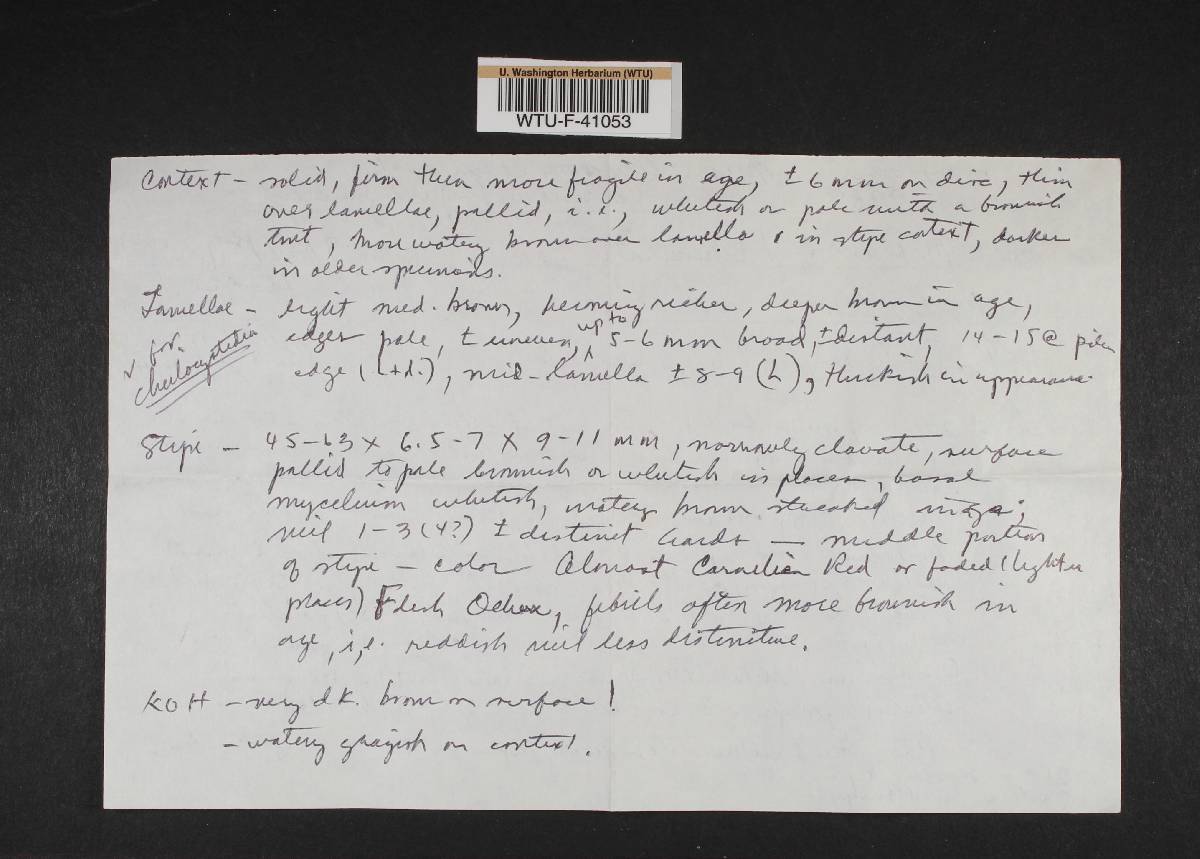 U. Washington Herbarium (WTU)
WTU-F-41053
Context – solid, firm then more fragile in age, ± 6 mm on disc, thin
over lamellae, pallid, i.e., whitish or pale with a brownish
tint, more watery brown over lamella & in stipe context, darker
in older specimens.
Lamellae – light med. brown, becoming richer, deeper brown in age,
edges pale, ± uneven, up to 5-6 mm broad, ± distant, 14-15 @ pileus
edge (L+l.), mid-lamella ± 8-9 (L), thickish in appearance.
✓ for
cheilocystidia
Stipe – 45-63 x 6.5-7 x 9-11 mm, narrowly clavate, surface
pallid to pale brownish or whitish in places, basal
mycelium whitish, watery brown streaked in age;
veil 1-3 (4?) ± distinct bands – middle portion
of stipe – color Almost Carnelian Red or faded (lighter
places) Flesh Ocher, fibrils often more brownish in
age, i.e. reddish veil less distinctive.
KOH – very dk. brown on surface!
– watery grayish on context.